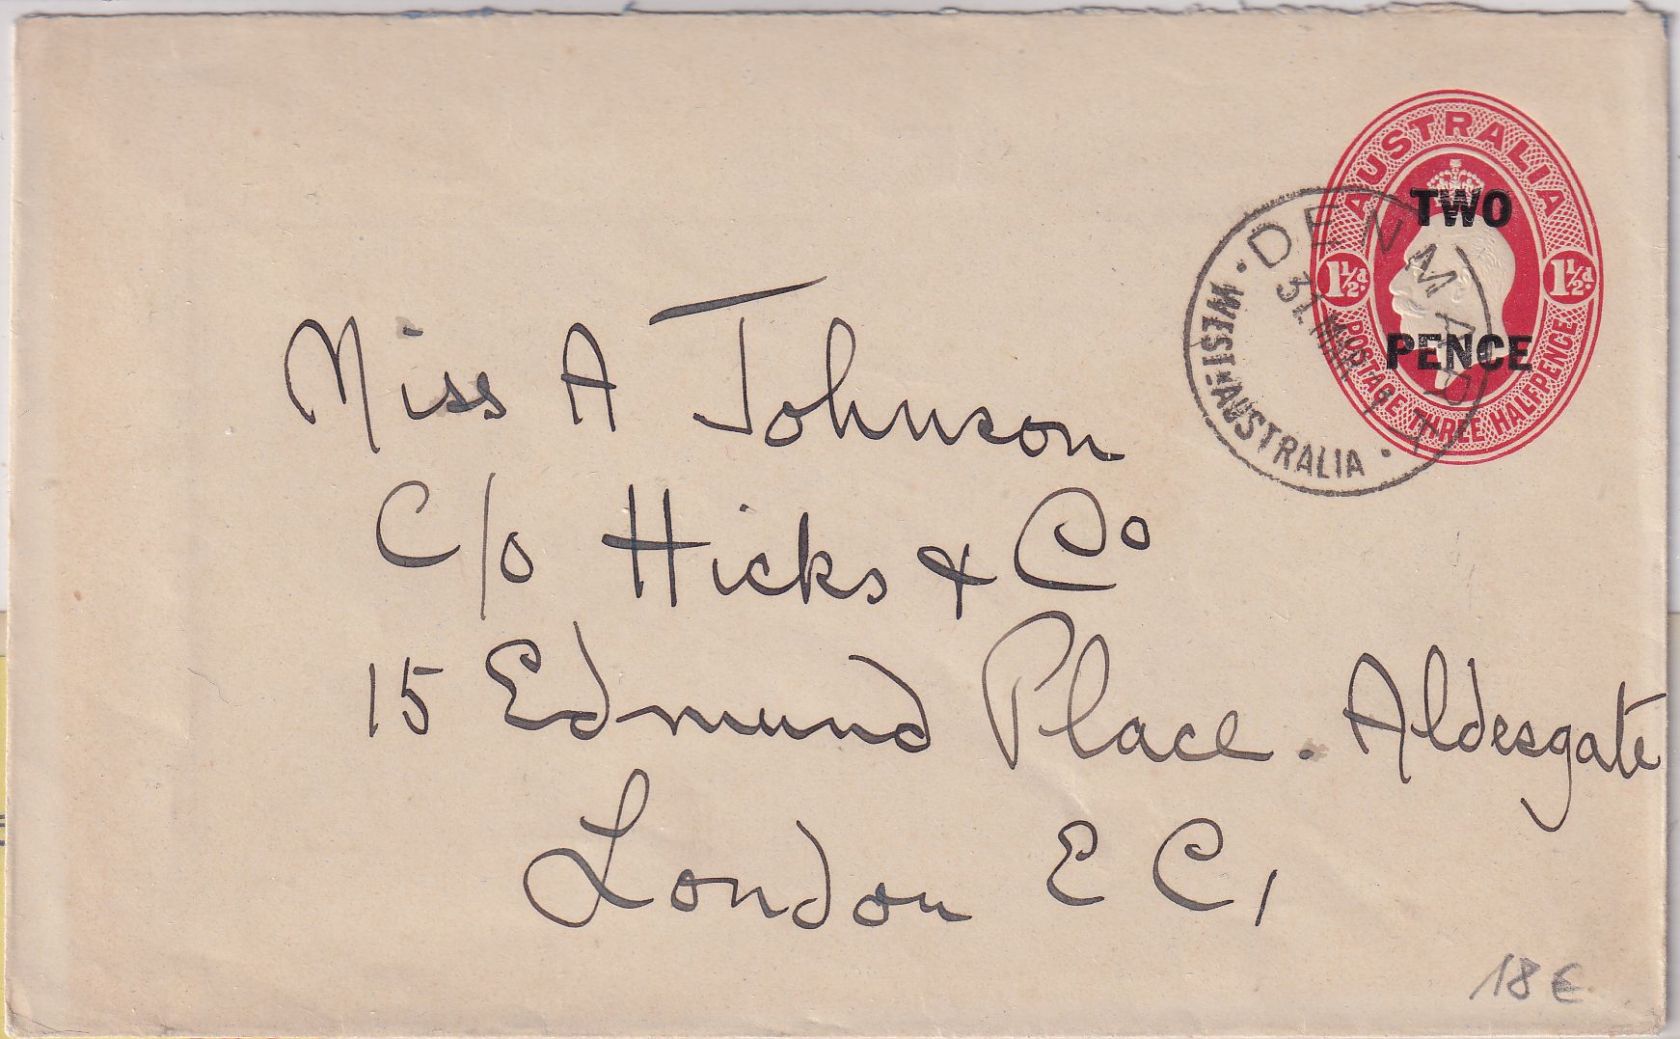 AUSTRALIA
TWO
1½d. 1½d.
PENCE
POSTAGE THREE HALFPENCE
DENMARK
31 MAR
WESTN AUSTRALIA
Miss A Johnson
C/o Hicks & Co
15 Edmund Place. Aldesgate
London E C 1
18 €